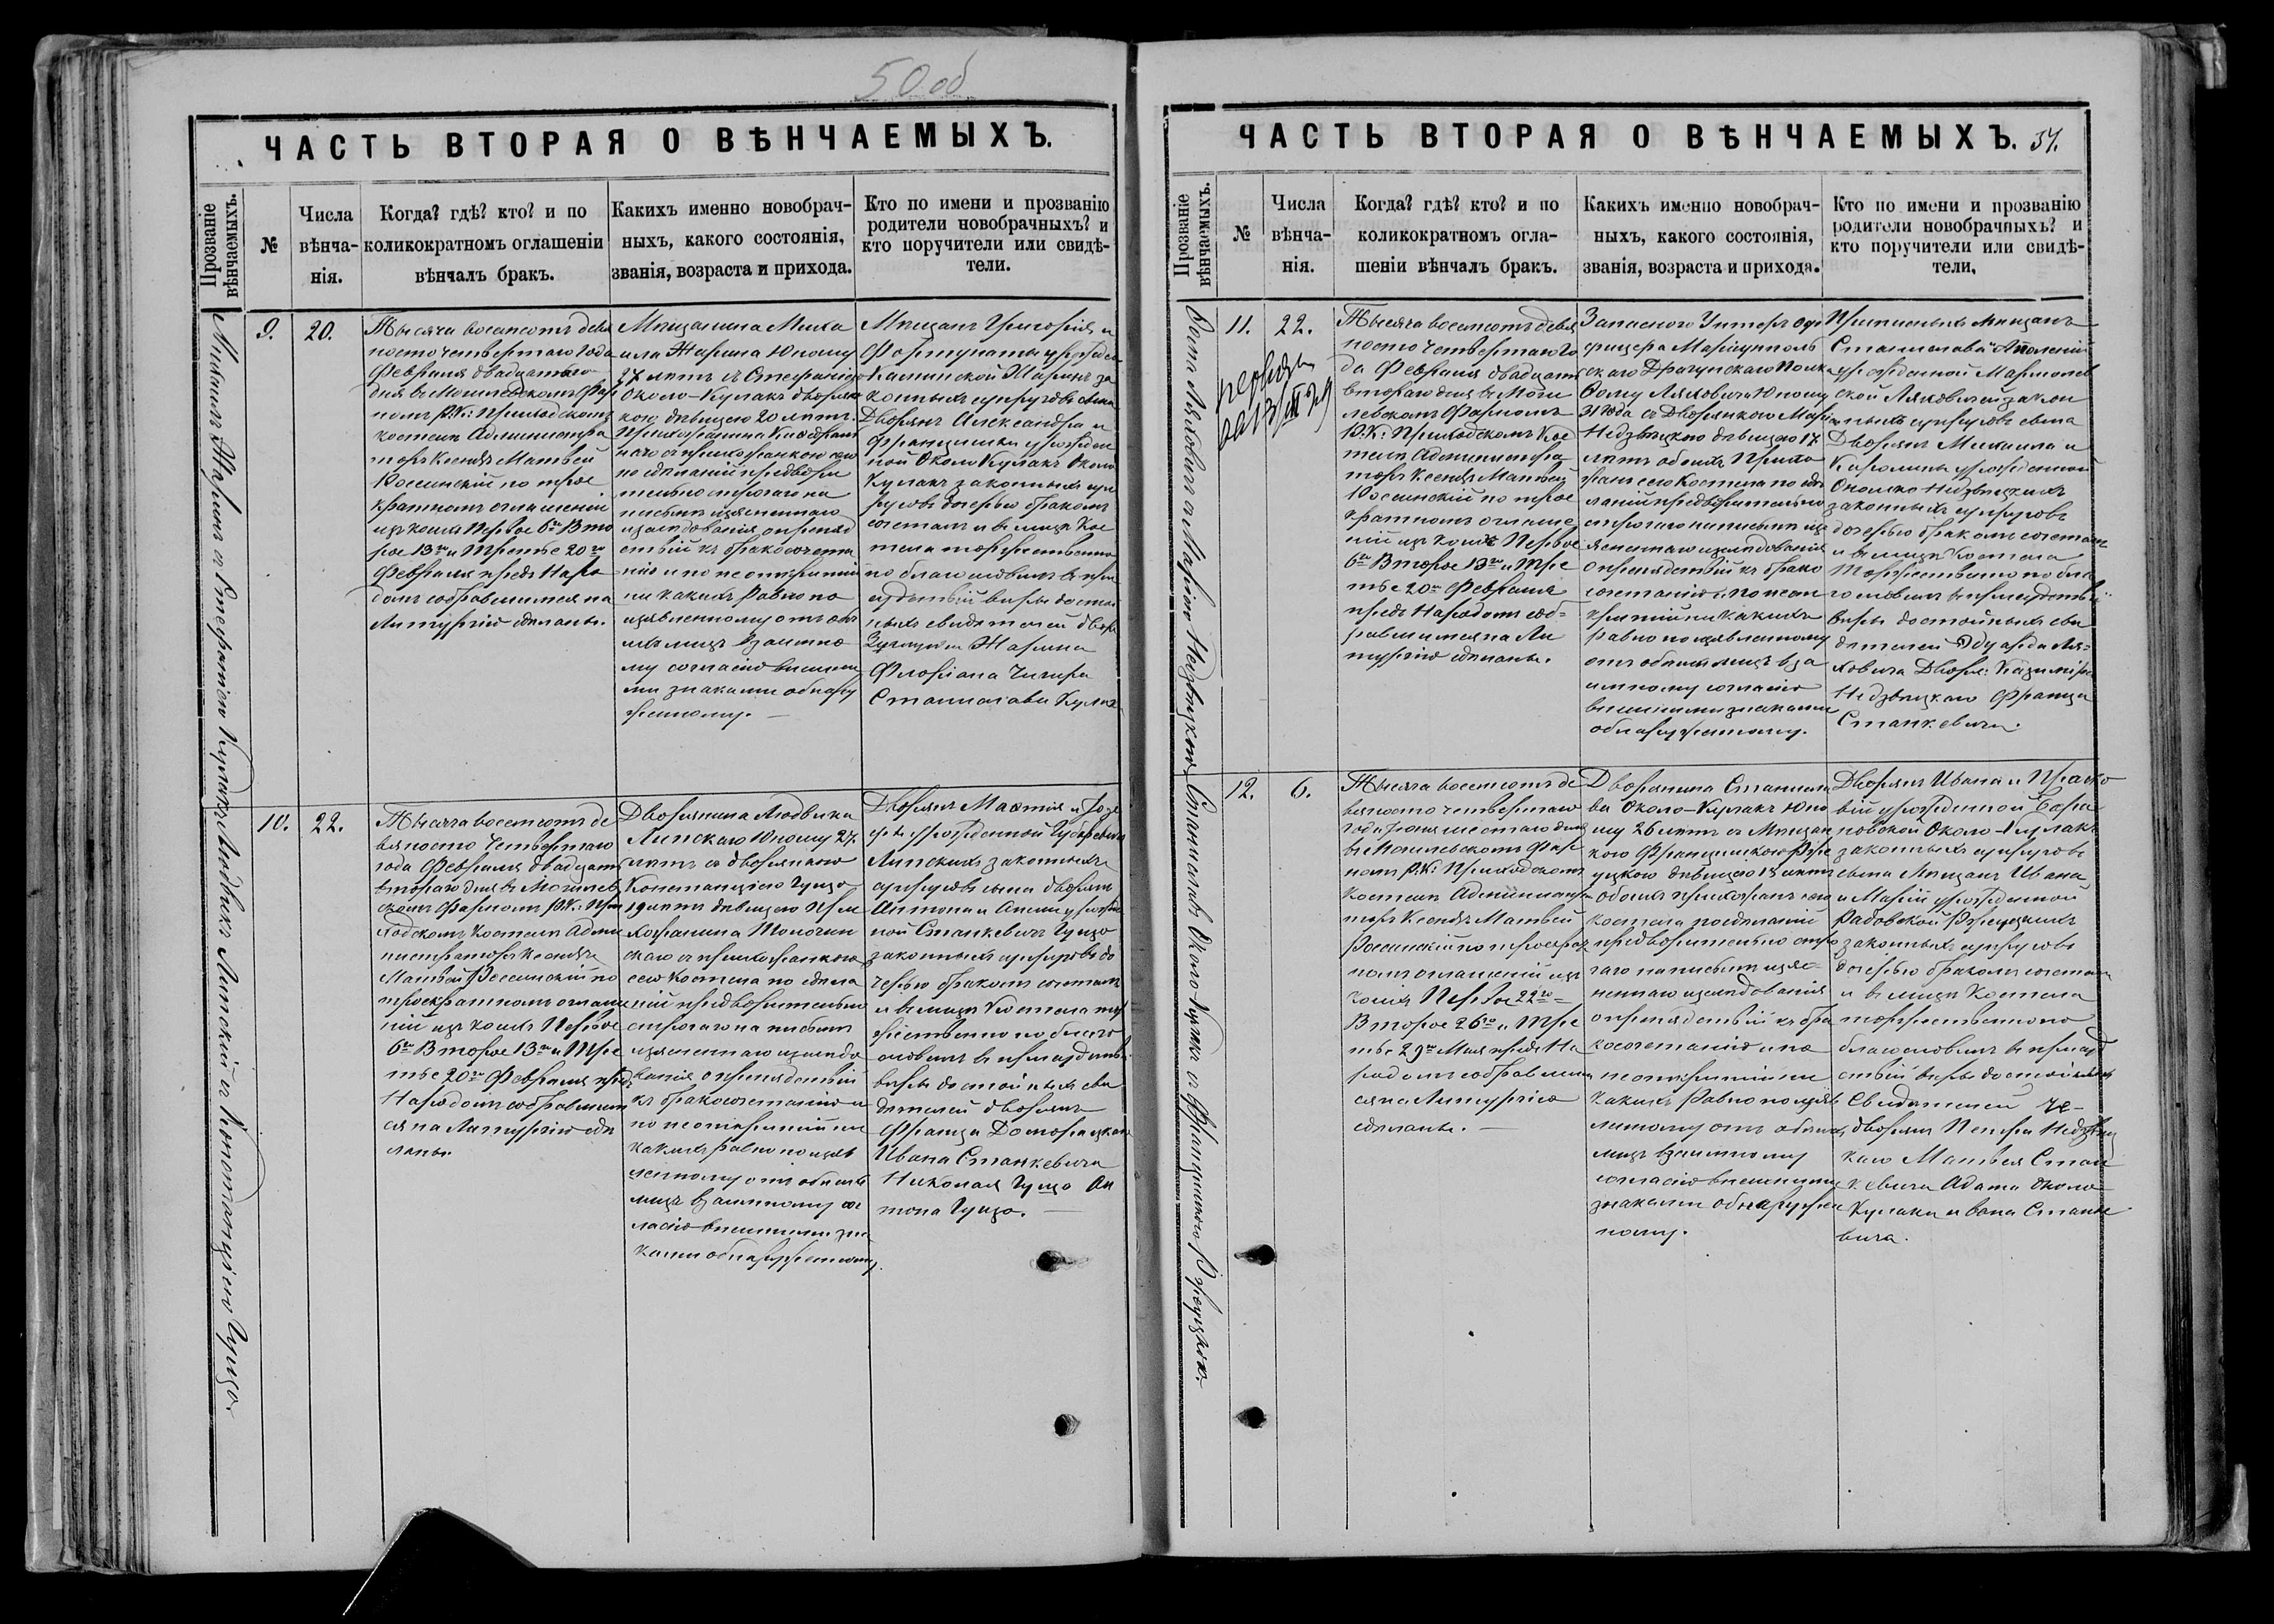 50 об
ЧАСТЬ ВТОРАЯ О ВѢНЧАЕМЫХЪ.
Прозваніе вѣнчаемыхъ.
№
Числа вѣнча-нія.
Когда? гдѣ? кто? и по
коликократномъ оглашеніи
вѣнчалъ бракъ.
Какихъ именно новобрач-
ныхъ, какого состоянія,
званія, возраста и прихода.
Кто по имени и прозванію
родители новобрачныхъ? и
кто поручители или свидѣ-
тели.
9.
20.
Тысяча восемсотъ девя
носто четвертаго года
Февраля двадцатаго
дня въ Могилевскомъ Фар
номъ Р.К: Приходскомъ
костелѣ Администра
торъ Ксендзъ Матвей
Россинскій по трое
кратномъ оглашеніи
изъ коихъ Первое 6го Вто
рое 13го и Третье 20го
Февраля предъ Наро
домъ собравшимся на
Литургію сдѣланы.
Мѣщанина Миха
ила Жарина Юношу
27 лѣтъ съ Стефаніею
Около-Кулакъ дворян
кою дѣвицею 20 лѣтъ.
по сдѣланіи предвори
тельно строгаго на
письмѣ изясненнаго
изслѣдованія о препят
ствіи къ бракосочета
нію и по неоткрытіи
ни какихъ равно по
изявленному отъ обо
ихъ лицъ взаимно
му согласію внѣшни
ми знаками обнару
женному. —
Мѣщанъ Григорія и
Фортунаты урожден
Каминской Жаринъ за
конныхъ супруговъ сына
Дворянъ Александра и
Францишки урожден
ной Около Кулакъ Около
Кулакъ законныхъ суп
руговъ дочерью бракомъ
сочеталъ и въ лицѣ Кос
тела торжественно
по благословилъ въ при
сутствіи вѣры достой
ныхъ свидѣтелей двор
Жарина
Флоріана Чигира
Станислава Кулак
Михаилъ Жаринъ съ Стефаніею Кулакъ
10.
22.
Тысяча восемсотъ де
вяносто четвертаго
года Февраля двадцать
втораго дня въ Могилев
скомъ Фарномъ Р.К: При
ходскомъ костелѣ Адми
нистраторъ Ксендзъ
Матвей Россинскій по
троекратномъ оглаше
ніи изъ коихъ Первое
6го Второе 13го и Тре
тье 20го Февраля предъ
Народомъ собравшим
ся на Литургію сдѣ
ланы.
Дворянина Людвика
Липскаго Юношу 27
лѣтъ съ дворянкою
Констанціею Гуцо
19 лѣтъ дѣвицею При
хожанина Толочин
скаго съ прихожанкою
сего Костела по сдѣла
ніи предворительно
строгаго на письмѣ
изясненнаго изслѣдо
ванія о препятствіи
къ бракосочетанію и
по неоткрытіи ни
какихъ равно по изяв
ленному отъ обоихъ
лицъ взаимному со
гласію внѣшними зна
ками обнаруженному.
Дворянъ Матвія и Іозе
фы урожденной
Липскихъ законныхъ
супруговъ сына дворянъ
Антона и Анны урожден
ной Станкевичъ Гуцо
законныхъ супруговъ до
черью бракомъ сочеталъ
и въ лицѣ Костела тор
жественно по благо
словилъ въ присудствіи
вѣры достойныхъ сви
дѣтелей дворянъ
Франца Доморацкаго
Ивана Станкевича
Николая Гуцо Ан
тона Гуцо. —
Людвикъ Липскій съ Констанціею Гуцо
ЧАСТЬ ВТОРАЯ О ВѢНЧАЕМЫХЪ. 37.
Прозваніе вѣнчаемыхъ.
№
Числа вѣнча-нія.
Когда? гдѣ? кто? и по
коликократномъ огла-
шеніи вѣнчалъ бракъ.
Какихъ именно новобрач-
ныхъ, какого состоянія,
званія, возраста и прихода.
Кто по имени и прозванію
родители новобрачныхъ? и
кто поручители или свидѣ-
тели.
11.
22.
Тысяча восемсотъ девя
носто четвертаго го
да Февраля двадцать
втораго дня въ Моги
левскомъ Фарномъ
Р.К: Приходскомъ Кос
телѣ Администра
торъ Ксендзъ Матвей
Россинскій по трое
кратномъ оглаше
ніи изъ коихъ Первое
6го Второе 13го и Тре
тье 20го Февраля
предъ Народомъ соб-
равшимся на Ли
тургію сдѣланы.
Запаснаго Унтеръ офи
цера Маріуполь
скаго Драгунскаго Полка
Ѳому Ляховича Юношу
31 года съ Дворянкою Маріею
Недзвѣцкою дѣвицею 17
лѣтъ обоихъ Прихо
жанъ сего Костела по сдѣ
ланіи предворительно
строгаго на письмѣ из
ясненнаго изслѣдованія
о препятствіи къ брако
сочетанію и по неот
крытіи ни какихъ
равно по изявленному
отъ обоихъ лицъ вза
имному согласію
внѣшними знаками
обнаруженному.
Мѣщанъ
Станислава и Аполоніи
урожденной
Ляховичей закон
ныхъ супруговъ сына
Дворянъ Михаила и
Каролины урожденной
Недзвѣцкихъ
законныхъ супруговъ
дочерью бракомъ сочеталъ
и въ лицѣ Костела
Торжественно по бла
гословилъ въ присудствіи
вѣры достойныхъ сви
дѣтелей Эдуарда Ля=
ховича Дворян: Казиміра
Недзвѣцкаго Франца
Станкевича.
Ѳома Ляховичъ съ Маріею Недзвѣцкою
12.
6.
Тысяча восемсотъ де
вяносто четвертаго
года Іюня шестаго дня
въ Могилевскомъ Фар
номъ Р.К: Приходскомъ
Костелѣ Администра
торъ Ксендзъ Матвей
Россинскій по троекрат
номъ оглашеніи изъ
коихъ Первое 22го =
Второе 26го и Тре
тье 29го Мая предъ На
родомъ собравшим
ся на Литургію
сдѣланы. —
Дворянина Станисла
ва Около-Кулакъ Юно
шу 26 лѣтъ съ Мѣщан
кою Францишкою Рже
уцкою дѣвицею 18 лѣтъ
обоихъ прихожанъ сего
костела по сдѣланіи
предворительно стро
гаго на письмѣ изяс=
неннаго изслѣдованія
о препятствіи къ бра
косочетанію и по
неоткрытіи ни
какихъ равно по изяв
ленному отъ обоихъ
лицъ взаимному
согласію внѣшними
знаками обнаружен
ному.
Дворянъ Ивана и
урожденной
Около-Кулакъ
законныхъ супруговъ
сына Мѣщанъ Ивана
и Маріи урожденной
Радовской Ржеуцкихъ
законныхъ супруговъ
дочерью бракомъ сочеталъ
и въ лицѣ Костела
торжественно по
благословилъ въ присуд
ствіи вѣры достойныхъ
Свидетелей
дворянъ Петра Недзвѣц
каго Матвея Стан
кевича Адама Около
Кулака Ивана Станке
вича.
Станиславъ Около Кулакъ съ Францишкою Ржеуцкою.